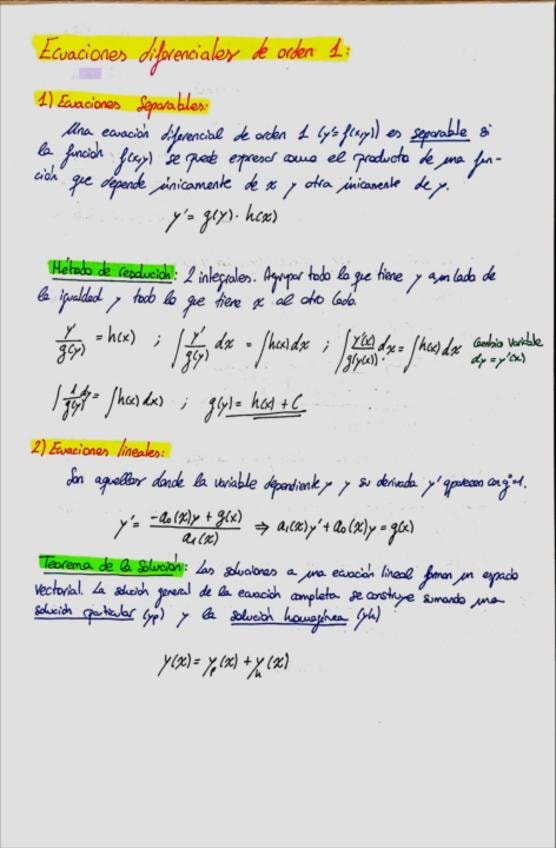 Ecuaciones diferenciales de orden 1:
1) Ecuaciones Separables:
Una ecuación diferencial de orden 1 (y'=f(x,y)) es separable si
la función f(x,y) se puede expresar como el producto de una fun-
ción que depende únicamente de x y otra únicamente de y.
y' = g(y) · h(x)
Método de resolución: 2 integrales. Agrupar todo lo que tiene y a un lado de
la igualdad y todo lo que tiene x al otro lado.
y'/g(y) = h(x) ; ∫ y'/g(y) dx = ∫h(x)dx ; ∫ y'(x)/g(y(x)) dx = ∫h(x)dx Cambio Variable
dy = y'(x)
∫ 1/g(y) dy = ∫h(x)dx) ; g(y) = h(x) + C
2) Ecuaciones lineales:
Son aquellas donde la variable dependiente y y su derivada y' aparecen con gº1.
y' = -a₀(x)y + g(x) / a₁(x) ⇒ a₁(x)y' + a₀(x)y = g(x)
Teorema de la solución: Las soluciones a una ecuación lineal forman un espacio
vectorial. La solución general de la ecuación completa se construye sumando una
solución particular (yp) y la solución homogénea (yh)
y(x) = yp(x) + yh(x)